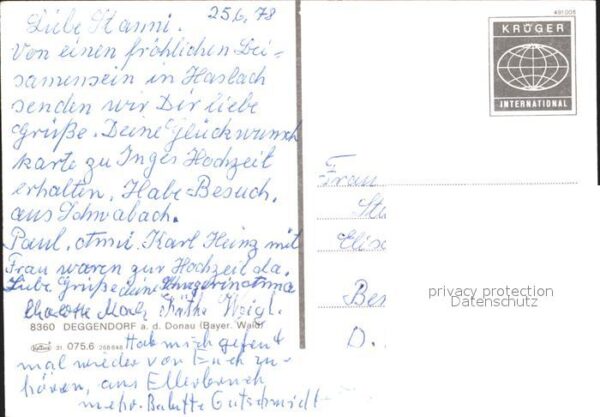 25.6.78
Liebe Hanni.
Von einen fröhlichen Bei-
samensein in Haslach
senden wir Dir liebe
Grüße. Deine Glückwunsch
karte zu Inges Hochzeit
erhalten. Habe Besuch.
aus Schwabach.
Paul, Karl Heinz mit
Frau waren zur Hochzeit da.
Liebe Grüße deine
Käthe Weigl.
8360 DEGGENDORF a. d. Donau (Bayer. Wald)
31 075.6
Hab mich gefreut
mal wieder von Euch zu
hören, aus
Babette Gutschmidt
491005
KRÜGER
INTERNATIONAL
Frau
privacy protection
Datenschutz
D.